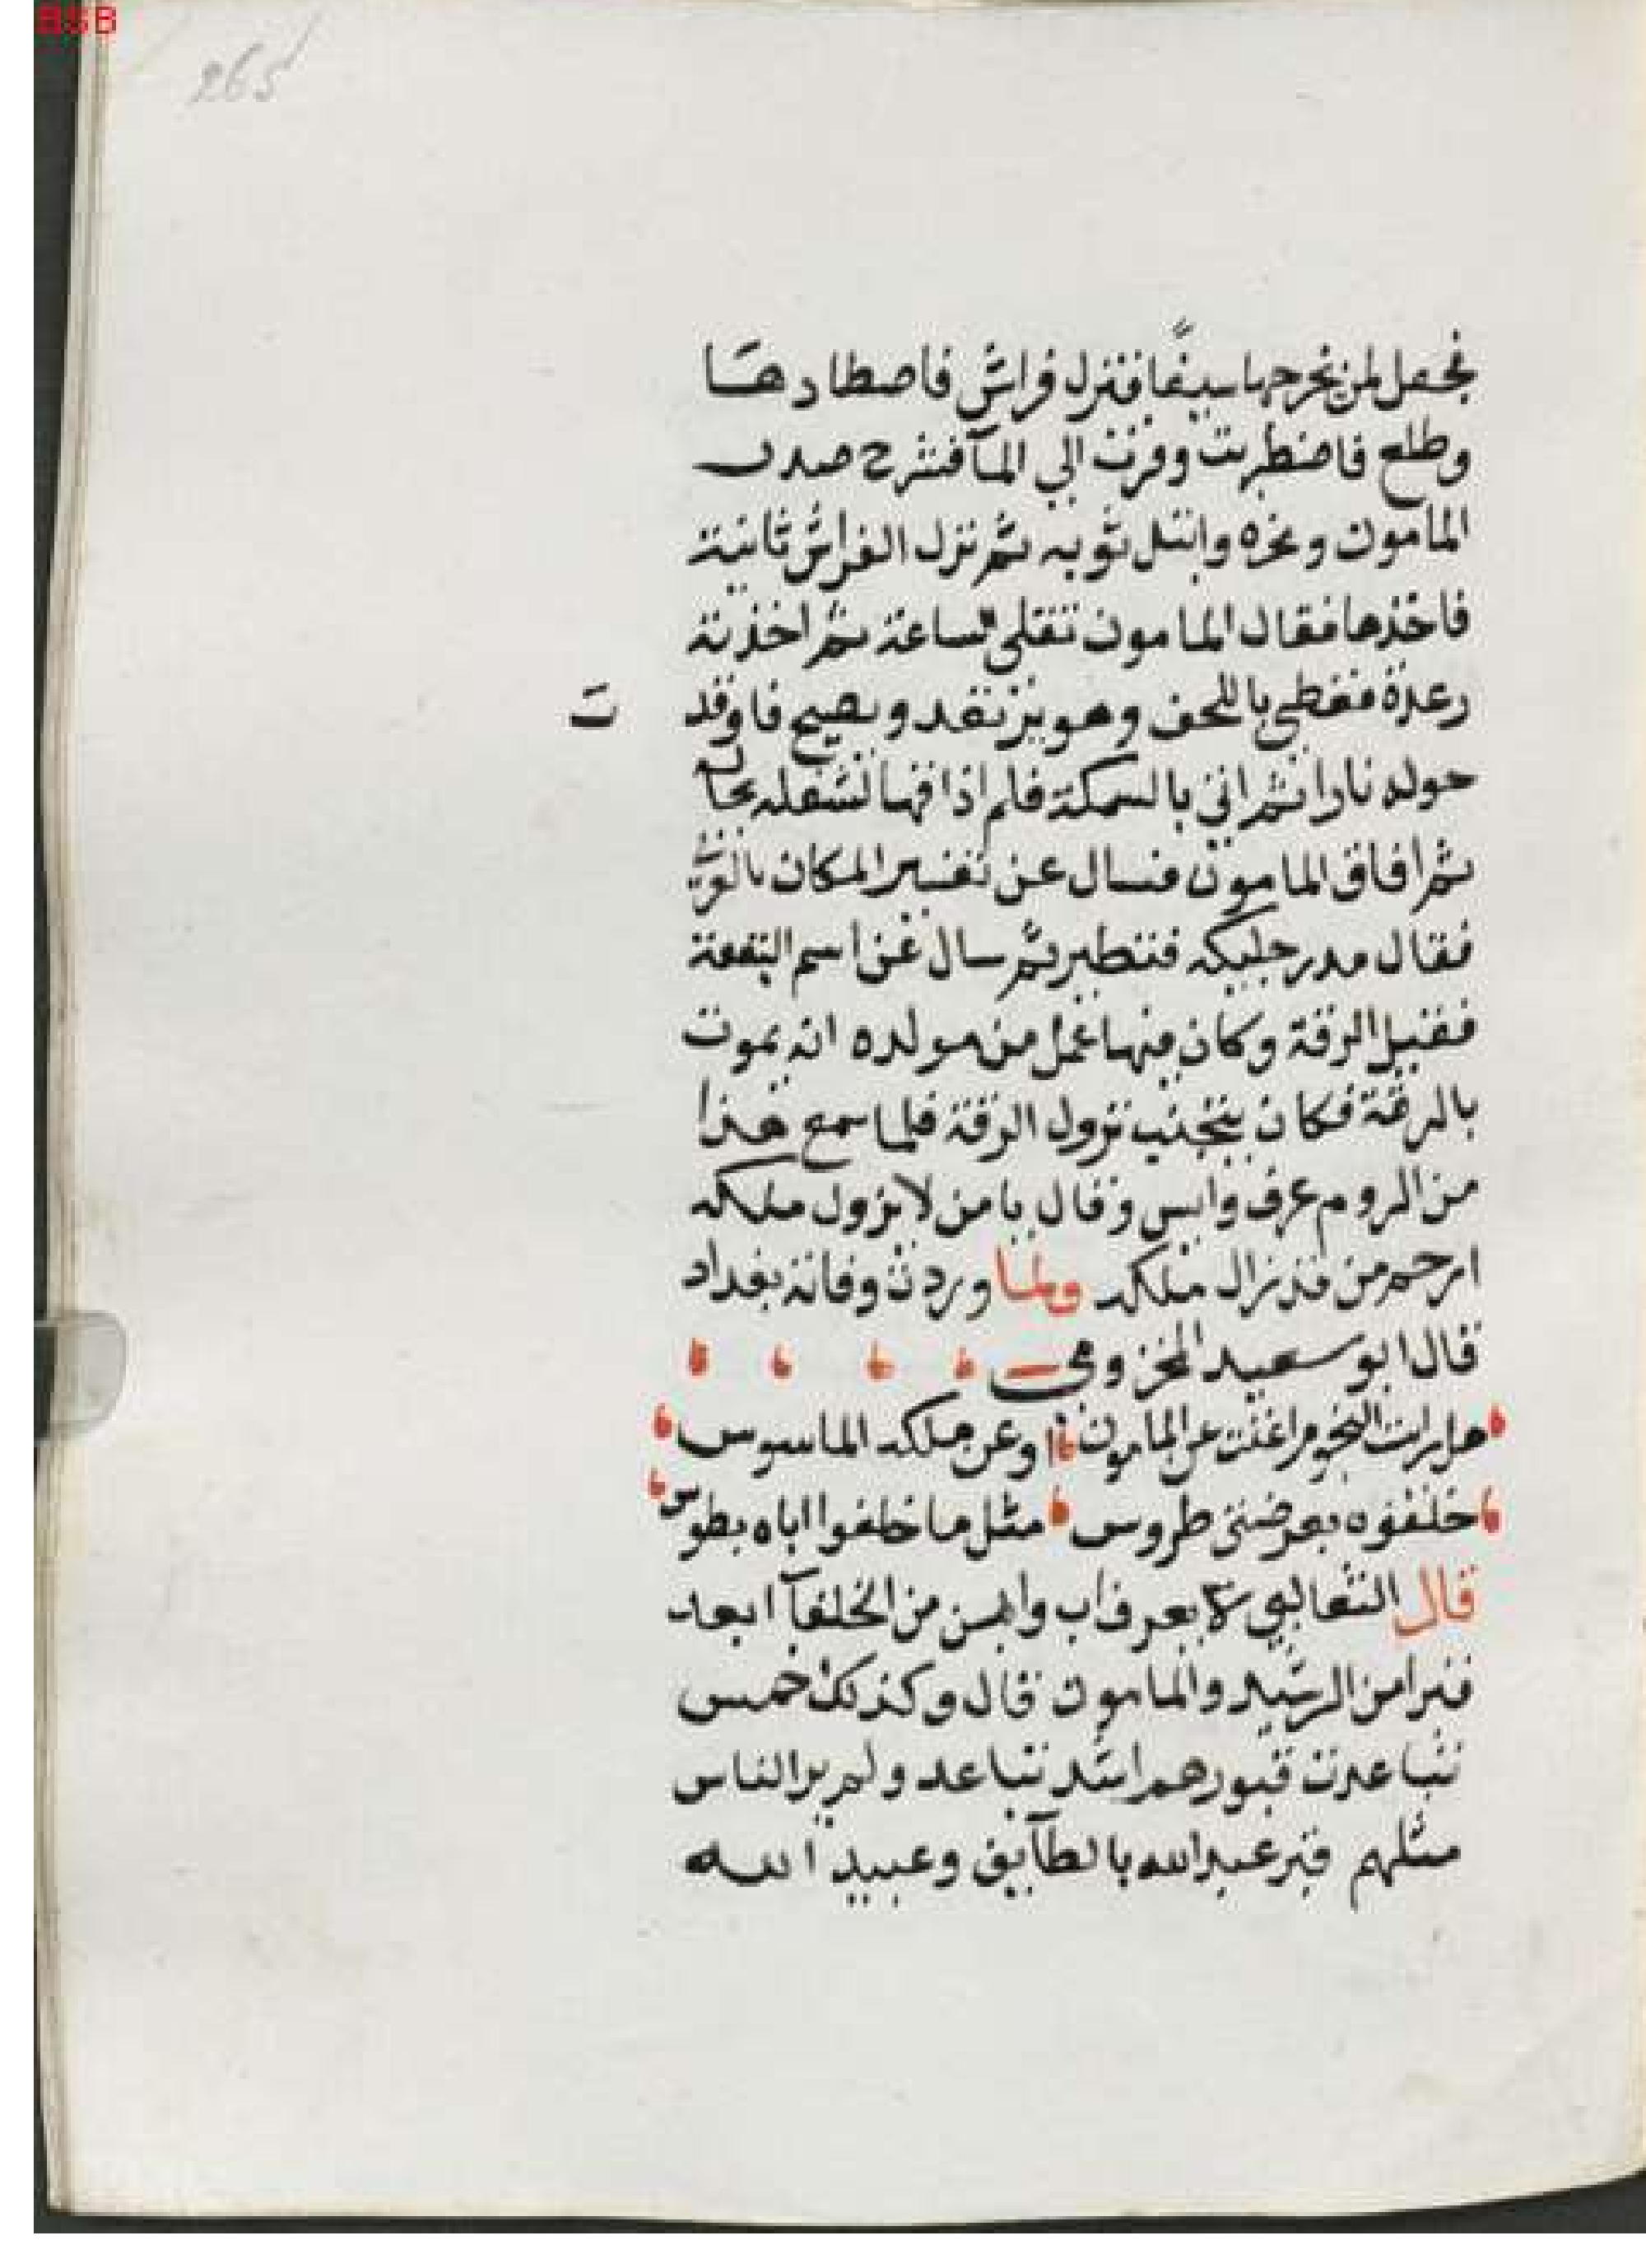 BSB
265
فجعل لمن يخرجها سيفًا فنزل فراش فاصطادها
وطلع فاضطربت وفرت الي المآ فنثرح صدر
المامون ونحره وابتل ثوبه ثم نزل الفراش ثانية
فاخذها فقال المامون تقلى الساعة ثم اخذته
رعدة فغطي باللحف وهو يرتعد ويصيح فاوقد
ت
حوله نارا ثم اتي بالسمكة فلم اذا فها لشغله بحاله
ثم افاق المامون فسال عن تفسير المكان بالعربي
فقال مدرجليكه فتطير ثم سال عن اسم البقعة
فقيل الرقة وكان فيها عمل من مولده انه يموت
بالرقة فكان يتجنب نزول الرقة فلما سمع هذا
من الروم عرف وايس وقال يا من لا يزول ملكه
ارحم من قد زال ملكه ولما وردت وفاته بغداد
قال ابو سعيد المخزومي
هل رايت النجوم اغنت عن المامون او عن ملكه الماسوس
خلفوه بعرضتي طروس مثل ما خلفوا اباه بطوس
قال الثعالبي لا يعرف اب وابن من الخلفآ ابعد
قبرا من الرشيد والمامون قال وكذلك خمس
تباعدت قبورهم اشد تباعد ولم ير الناس
مثلهم قبر عبد الله بالطآيف وعبيد الله